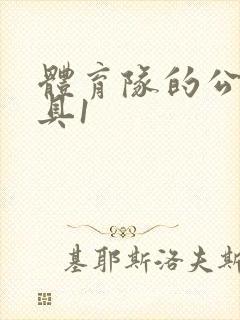 體育隊的公
具1
基耶斯洛夫斯